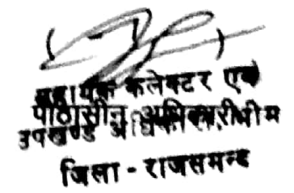 सहायक कलेक्टर एवं
पीठासीन अधिकारी
उपखण्ड भीम
जिला - राजसमन्द